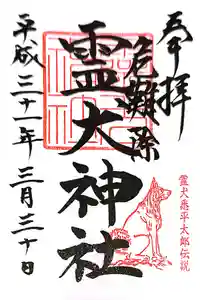 奉拝
危難除
霊犬神社
平成三十一年三月三十日
霊犬悉平太郎伝説